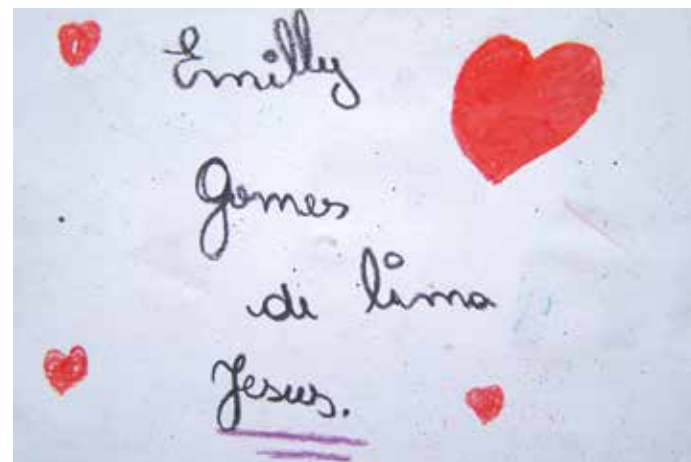 Emilly
Gomes
de lima
Jesus.